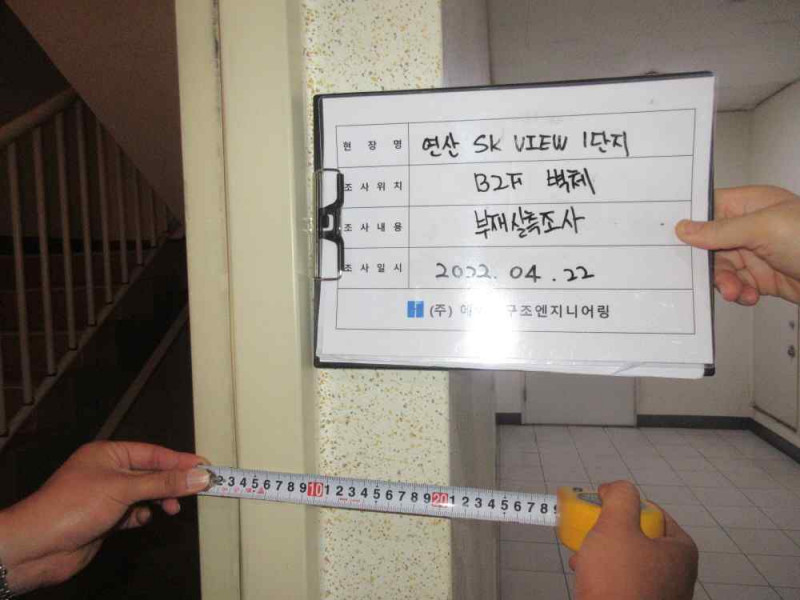 현장명 연산 SK VIEW 1단지
조사위치 B2F 벽체
조사내용 부재실측조사
조사일시 2022. 04. 22
(주) 구조엔지니어링
2 3 4 5 6 7 8 9 10 1 2 3 4 5 6 7 8 9 20 1 2 3 4 5 6 7 8 9